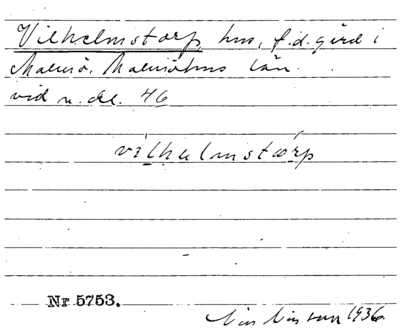 Vilhelmstorp hus, f.d. gård i
Malmö, Malmöhus län.
vid n. del. 46
vilhelmstorp
Nr 5753.
1936